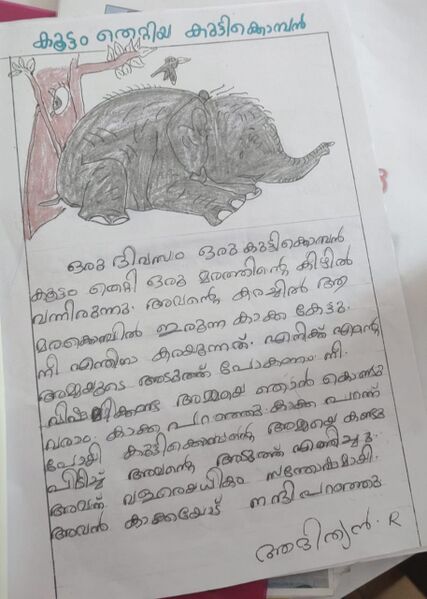 കൂട്ടം തെറ്റിയ കുട്ടിക്കൊമ്പൻ
ഒരു ദിവസം ഒരു കുട്ടിക്കൊമ്പൻ
കൂട്ടം തെറ്റി ഒരു മരത്തിന്റെ കീഴിൽ
വന്നിരുന്നു. അവന്റെ കരച്ചിൽ ആ
മരക്കൊമ്പിൽ ഇരുന്ന കാക്ക കേട്ടു.
നീ എന്തിനാ കരയുന്നത്. എനിക്ക് എന്റെ
അമ്മയുടെ അടുത്ത് പോകണം. നീ.
വിഷമിക്കണ്ട അമ്മയെ ഞാൻ കൊണ്ടു
വരാം. കാക്ക പറഞ്ഞു. കാക്ക പറന്ന്
പോയി കുട്ടിക്കൊമ്പന്റെ അമ്മയെ കണ്ടു
പിടിച്ച് അവന്റെ അടുത്ത് എത്തിച്ചു.
അവന് വളരെയധികം സന്തോഷമായി.
അവൻ കാക്കയോട് നന്ദി പറഞ്ഞു
ആദിത്യൻ. R